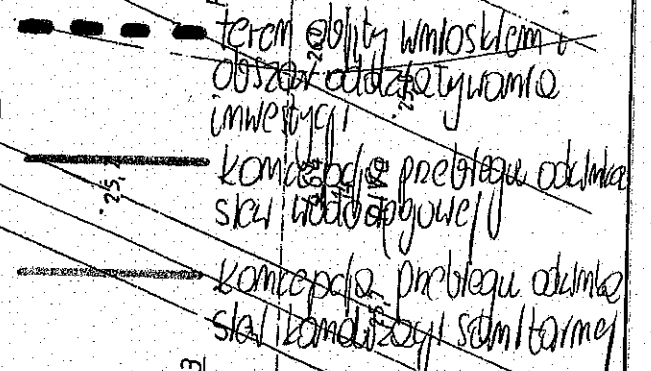 teren objęty wnioskiem i
obszar oddziaływania
inwestycji
koncepcja przebiegu odcinka
sieci wodociągowej
koncepcja przebiegu odcinka
sieci kanalizacji sanitarnej